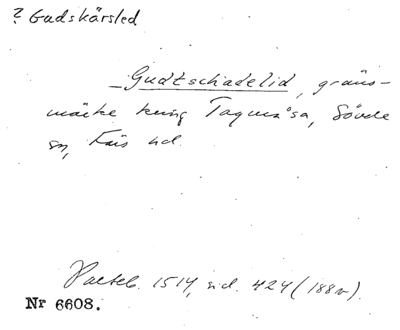 ? Gudskärsled
– Gudtschadelid, gräns-
märke kring Tagmåsa, Sövde
sn, Färs hd.
1514, sid. 424 (188v).
Nr 6608.